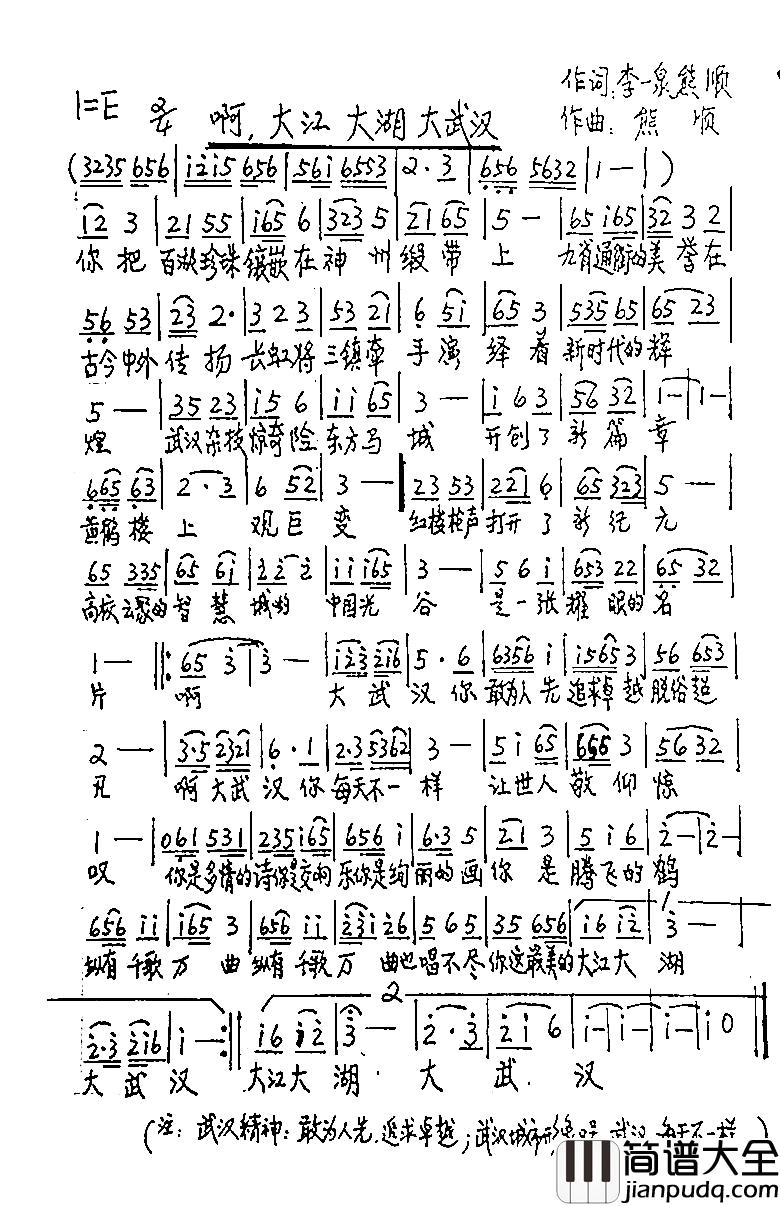 作词:李一泉熊顺
1=E 2/4 啊,大江大湖大武汉
作曲:熊顺
(3235 656|i2i5 656|56i 6553|2·3|656 5632|1—|)
i2 3|21 55|i65 6|323 5|21 65|5 —|65 i65|32 3 2|
你把百湖珍珠镶嵌在神州缎带上 九省通衢的美誉在
56 53|23 2·|3 2 3|53 21|6 5i|65 3|535 65|65 23|
古今中外传扬长虹将三镇牵手演绎着新时代的辉
5 —|35 23|i5 6|i i 65|3 —|i 6 3|56 32|1—|1—|
煌 武汉杂技惊奇险东方马城 开创了新篇章
665 63|2·3|6 52|3 —|23 53|221 6|65 323|5 —|
黄鹤楼上观巨变 红楼枪声打开了新纪元
65 335|65 6i|2 2 2|i i i65|3 —|5 6 i|653 22|65 32|
高校云聚的智慧城的中国光谷 是一张耀眼的名
1—|:65 3|3 —|i23 2i6|5·6|6356 i|i565 3|56 653|
片 啊 大武汉你敢为人先追求卓越脱俗超
2 —|3·5 2321|6·1|2·3 5362|3 —|5 i 65|665 3|56 32|
凡 啊大武汉你每天不一样 让世人敬仰惊
1 —|061 531|235 i65|656 i|6·3 5|21 3|5 i 6|2—|2—|
叹 你是多情的诗你是交响乐你是绚丽的画你是腾飞的鹤
656 ii|i65 3|656 ii|23i 26|5 6 5|35 656|i6 i2|3 —|
纵有千歌万曲纵有千歌万曲也唱不尽你这最美的大江大湖
2
2·3 2i6|i —:|i6 i2|3 —|2·3|2i 6|i—|i—|i—|i0‖
大武汉 大江大湖 大武汉
(注:武汉精神:敢为人先,追求卓越;武汉城市 武汉,每天不一样)
简谱大全
jianpudq.com